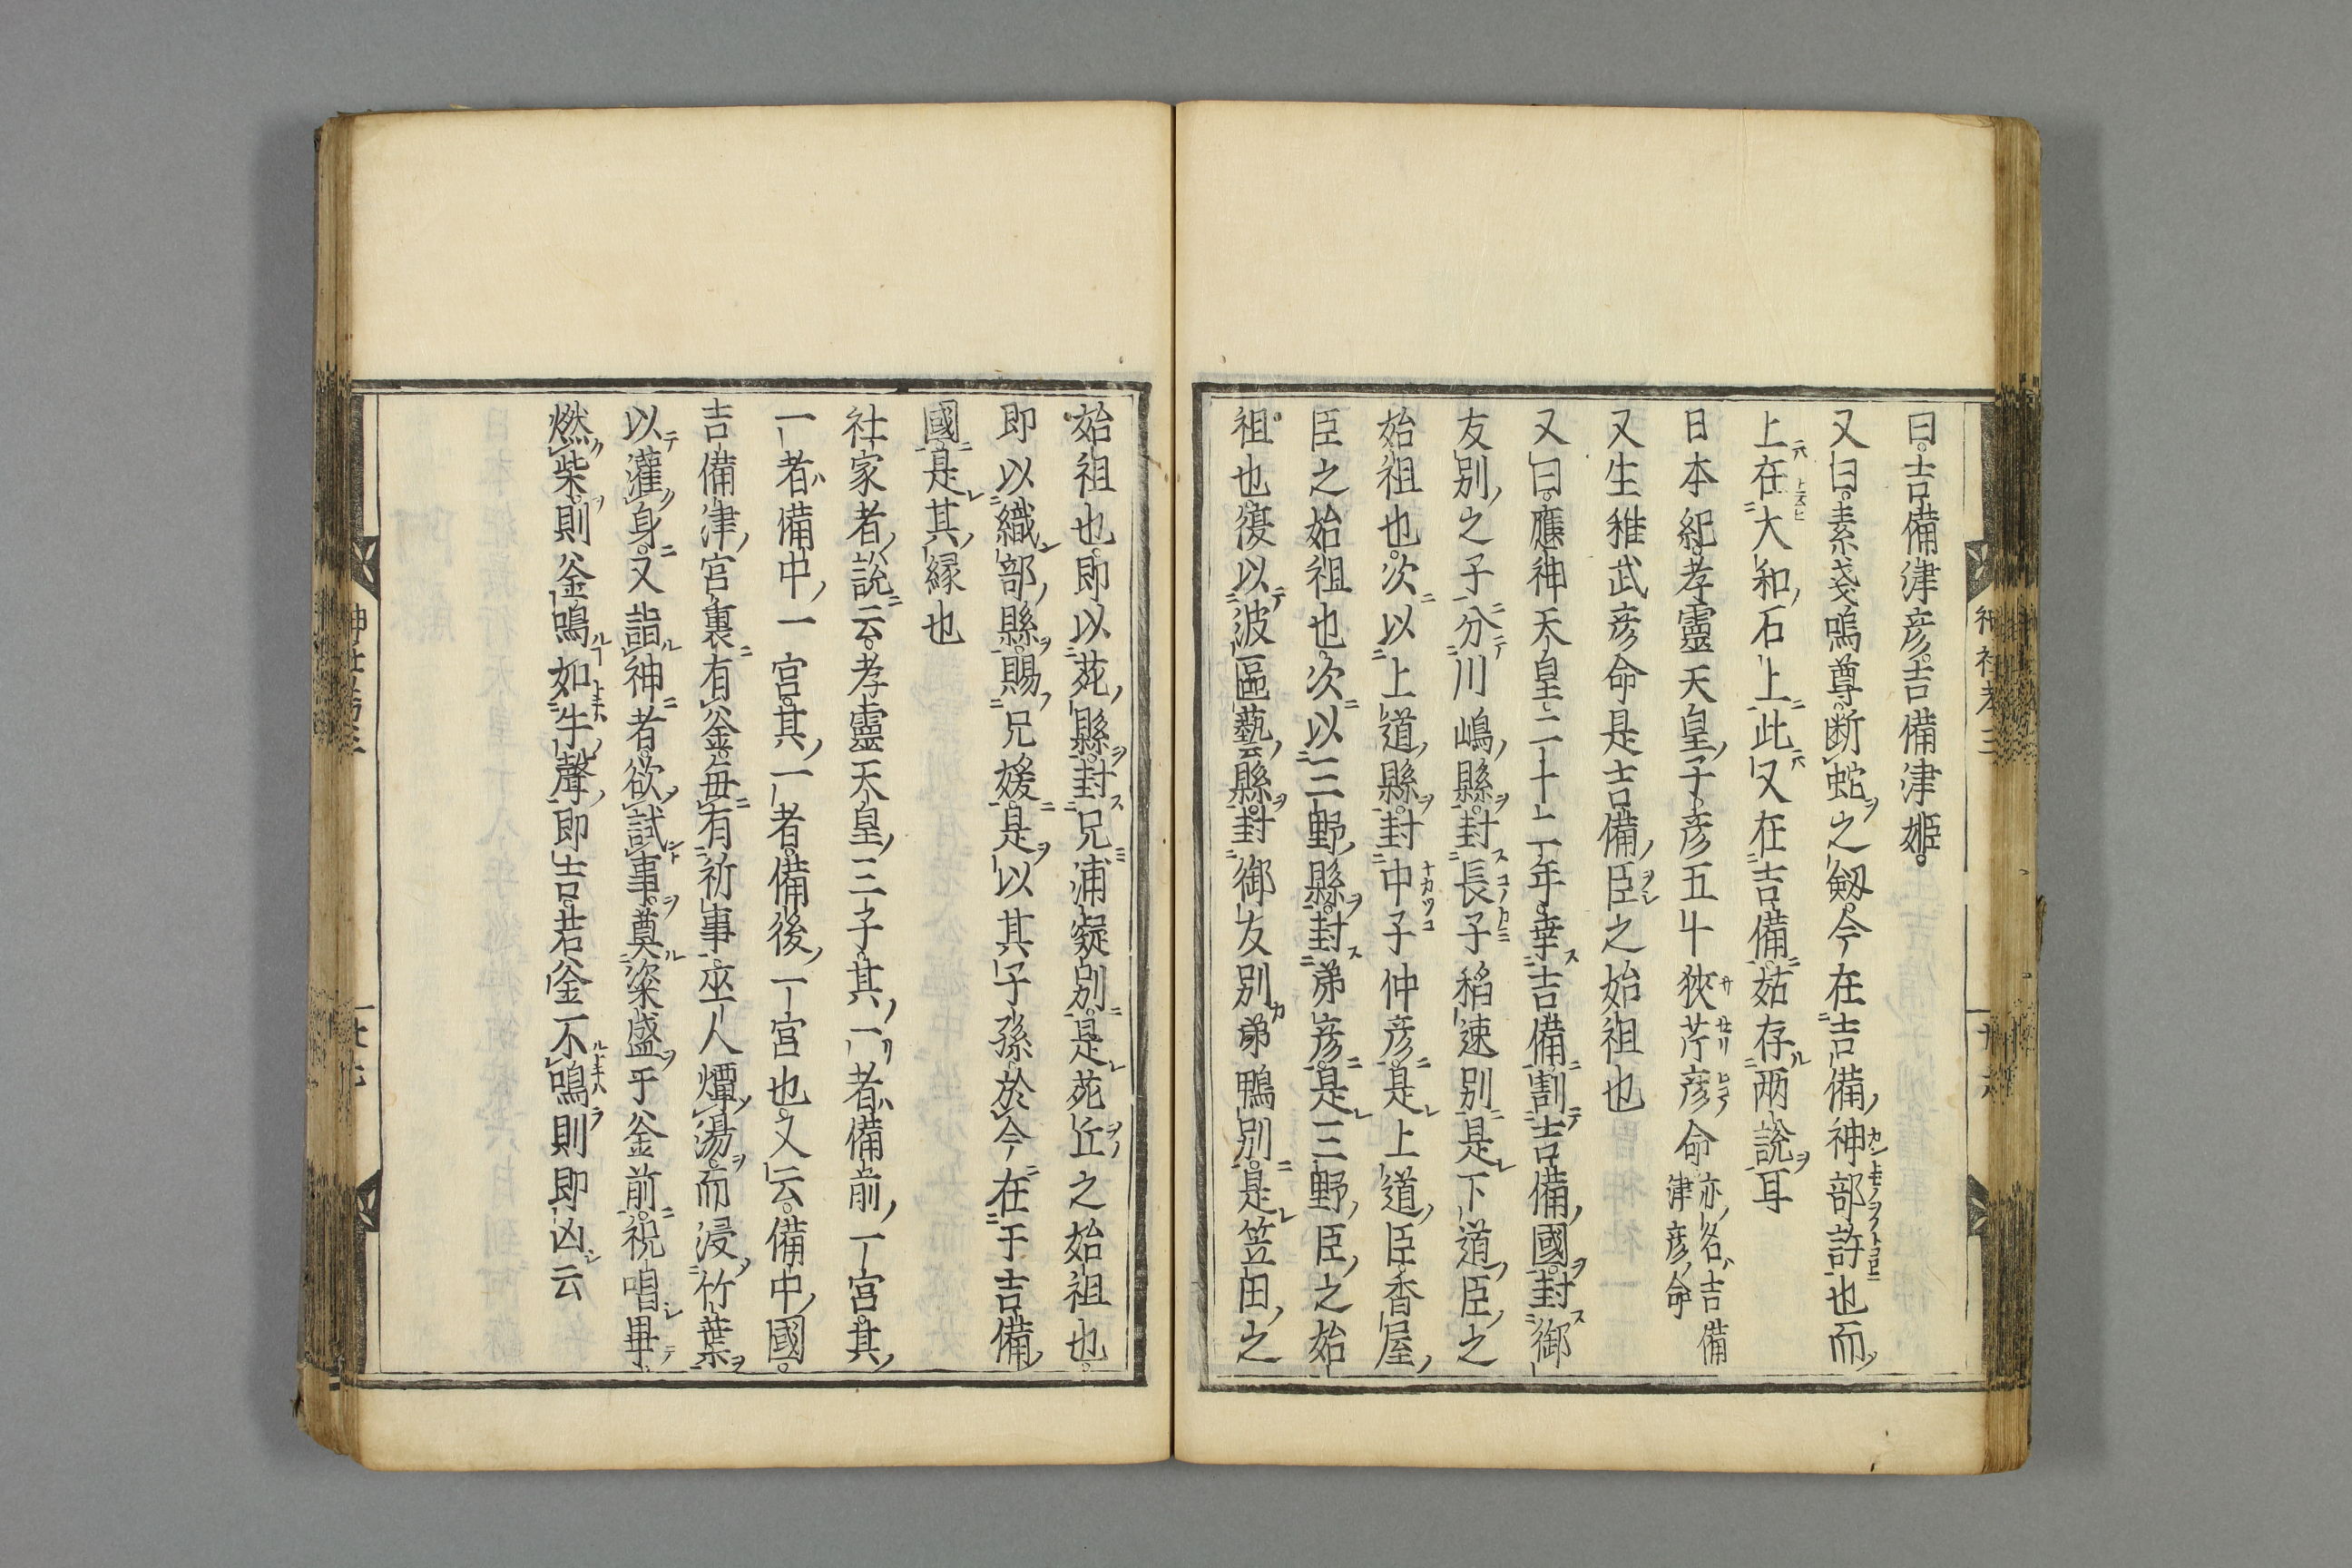 曰吉備津彦吉備津姫
又曰素戔嗚尊断蛇之釼今在吉備神部許也而
上在大和石上此又在吉備姑存两說耳
日本紀孝靈天皇子彦五十狹芹彦命亦名吉備津彦命
又生稚武彦命是吉備臣之始祖也
又曰應神天皇二十二年幸吉備割吉備國封御
友別之子分川嶋縣封長子稻速別是下道臣之
始祖也次以上道縣封中子仲彦是上道臣香屋
臣之始祖也次以三野縣封弟彦是三野臣之始
祖也復以波區藝縣封御友別弟鴨別是笠田之
始祖也即以苑縣封兄浦凝別是苑丘之始祖也
即以織部縣賜兄媛是以其子孫於今在于吉備
國是其縁也
社家者說云孝靈天皇三子其一者備前一宮其
一者備中一宮其一者備後一宮也又云備中國
吉備津宮裏有釜每有祈事巫人燂湯而浸竹葉
以灌身又詣神者欲試事奠粢盛于釜前祝唱畢
燃柴則釜鳴如牛聲即吉若釜不鳴則即凶云
神社考三